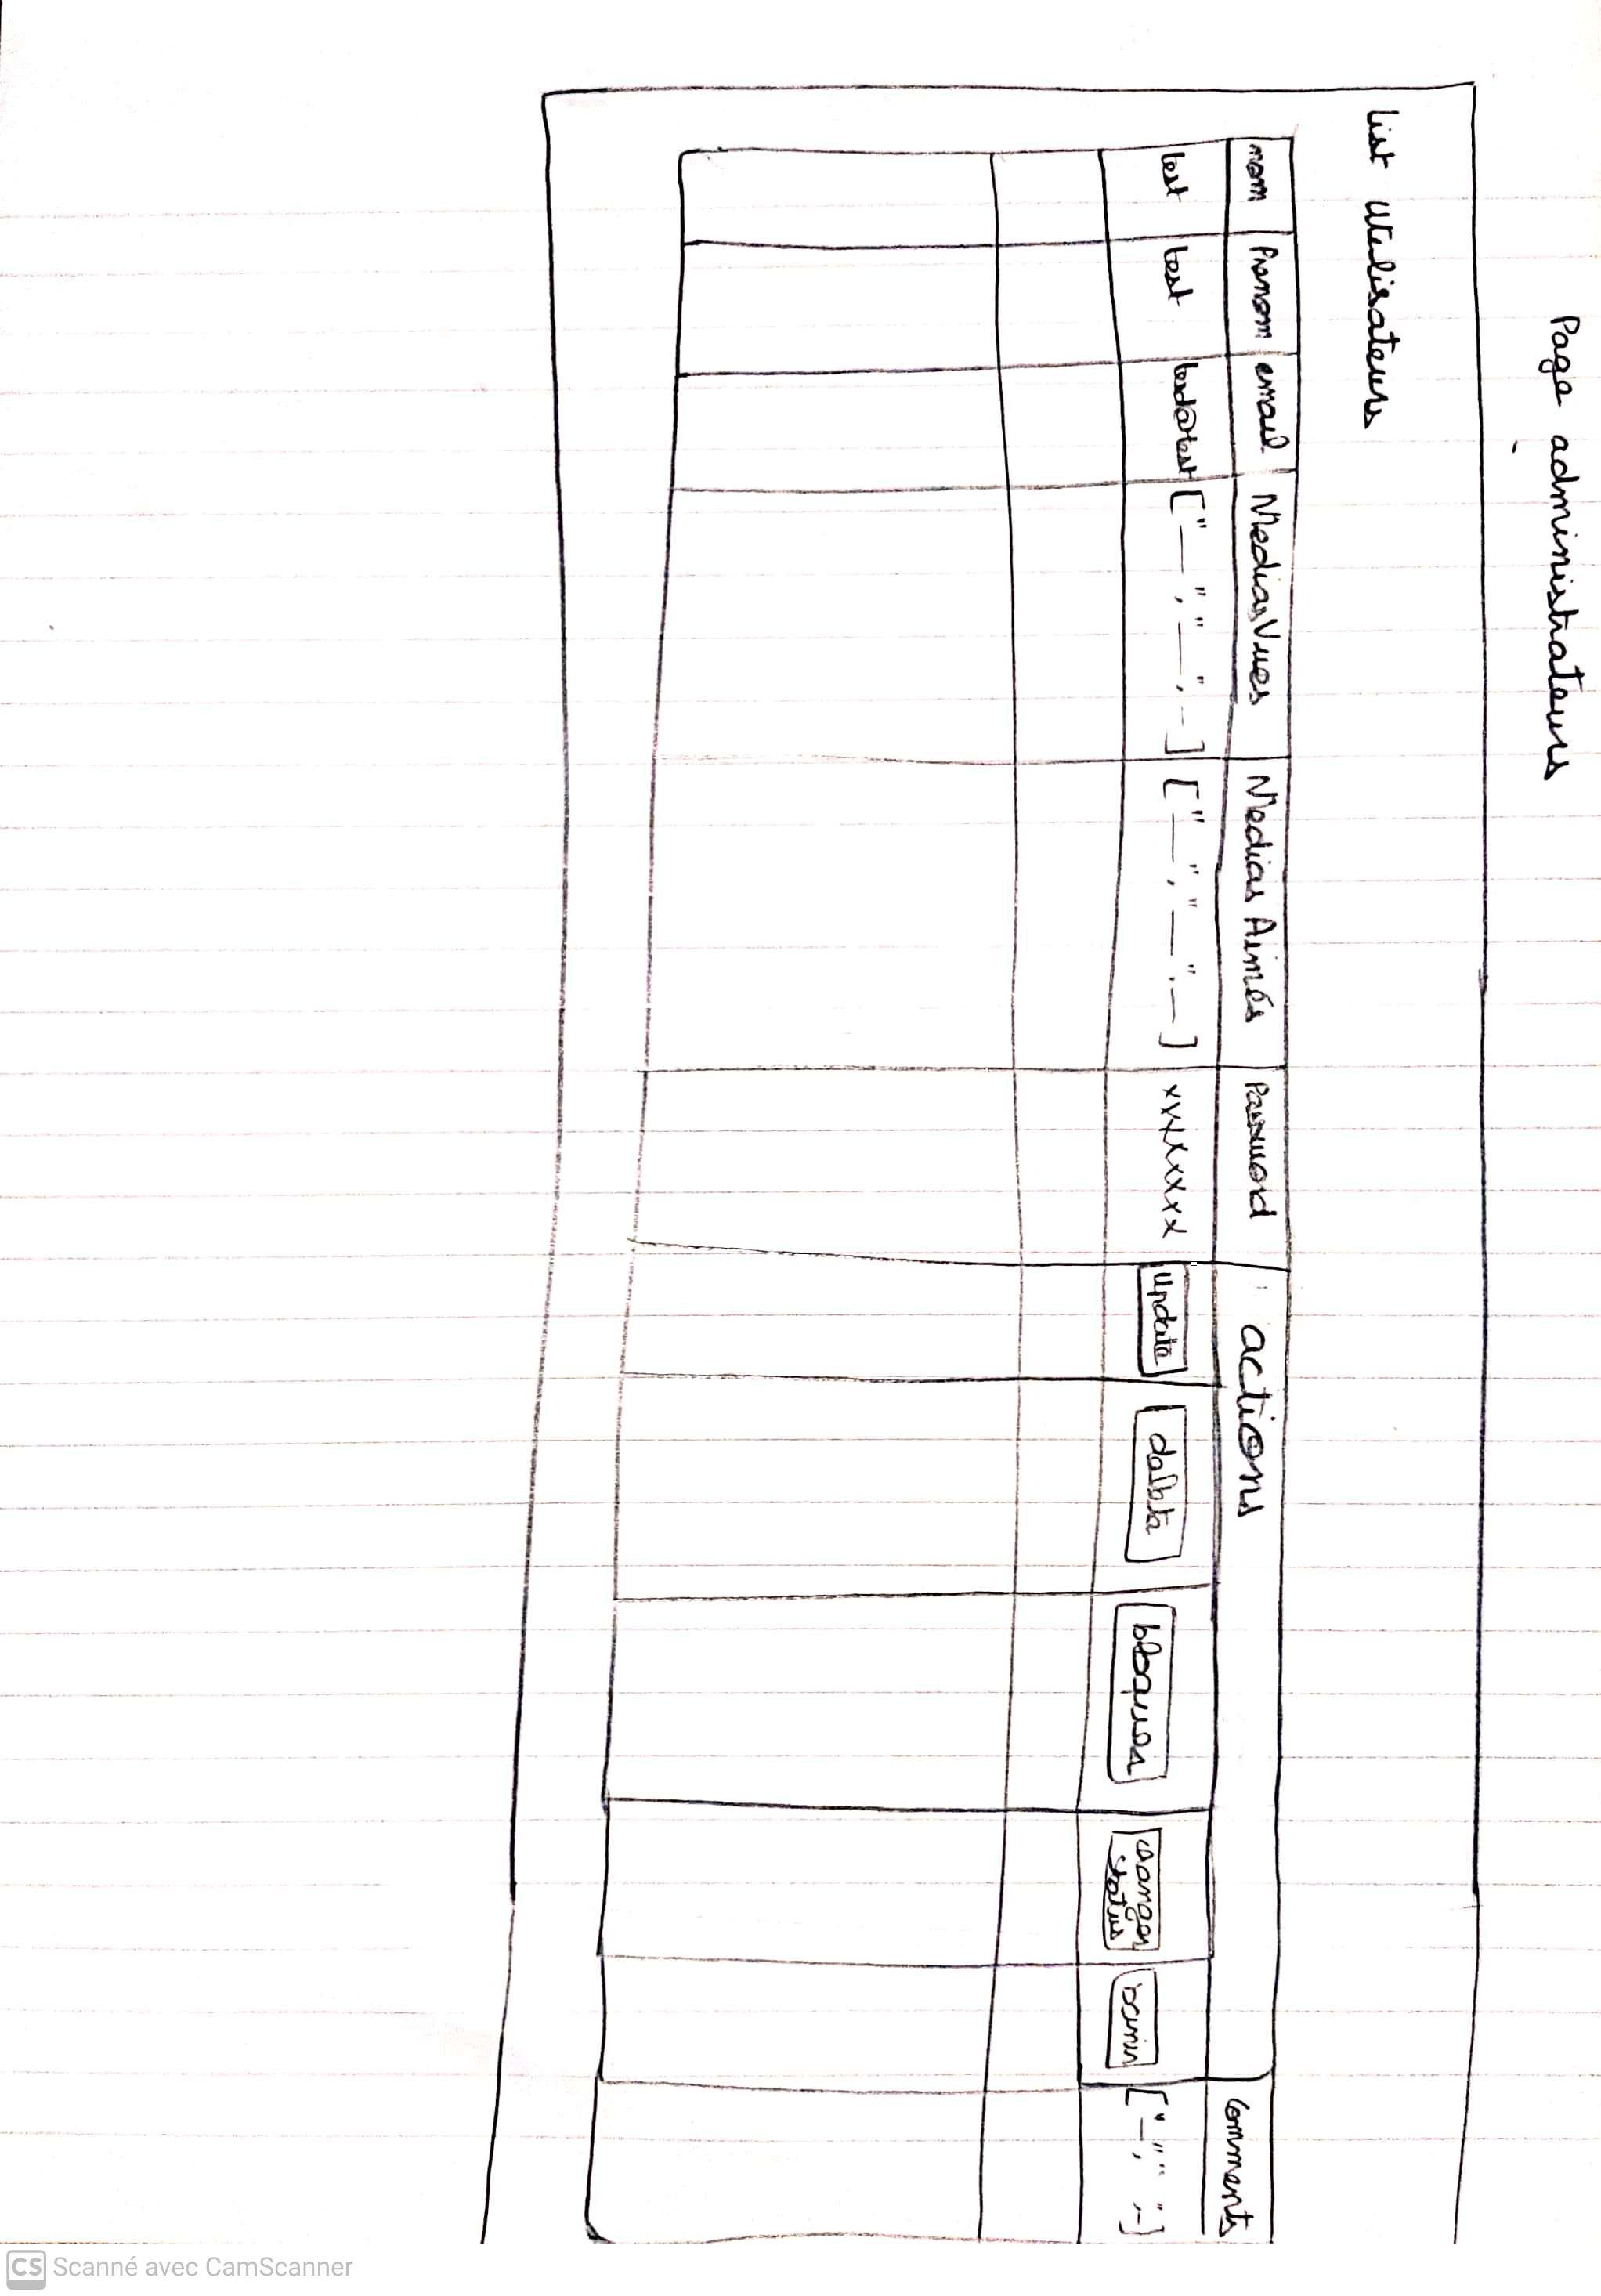 Page administrateurs
list utilisateurs
nom Prenom email Medias Vues Medias Aimés Password actions Comments
test test test@test ["__","__",_] ["__","__",_] xxxxxxxx update delete bloquer changer status banir ["_"," ",_]
CS Scanné avec CamScanner